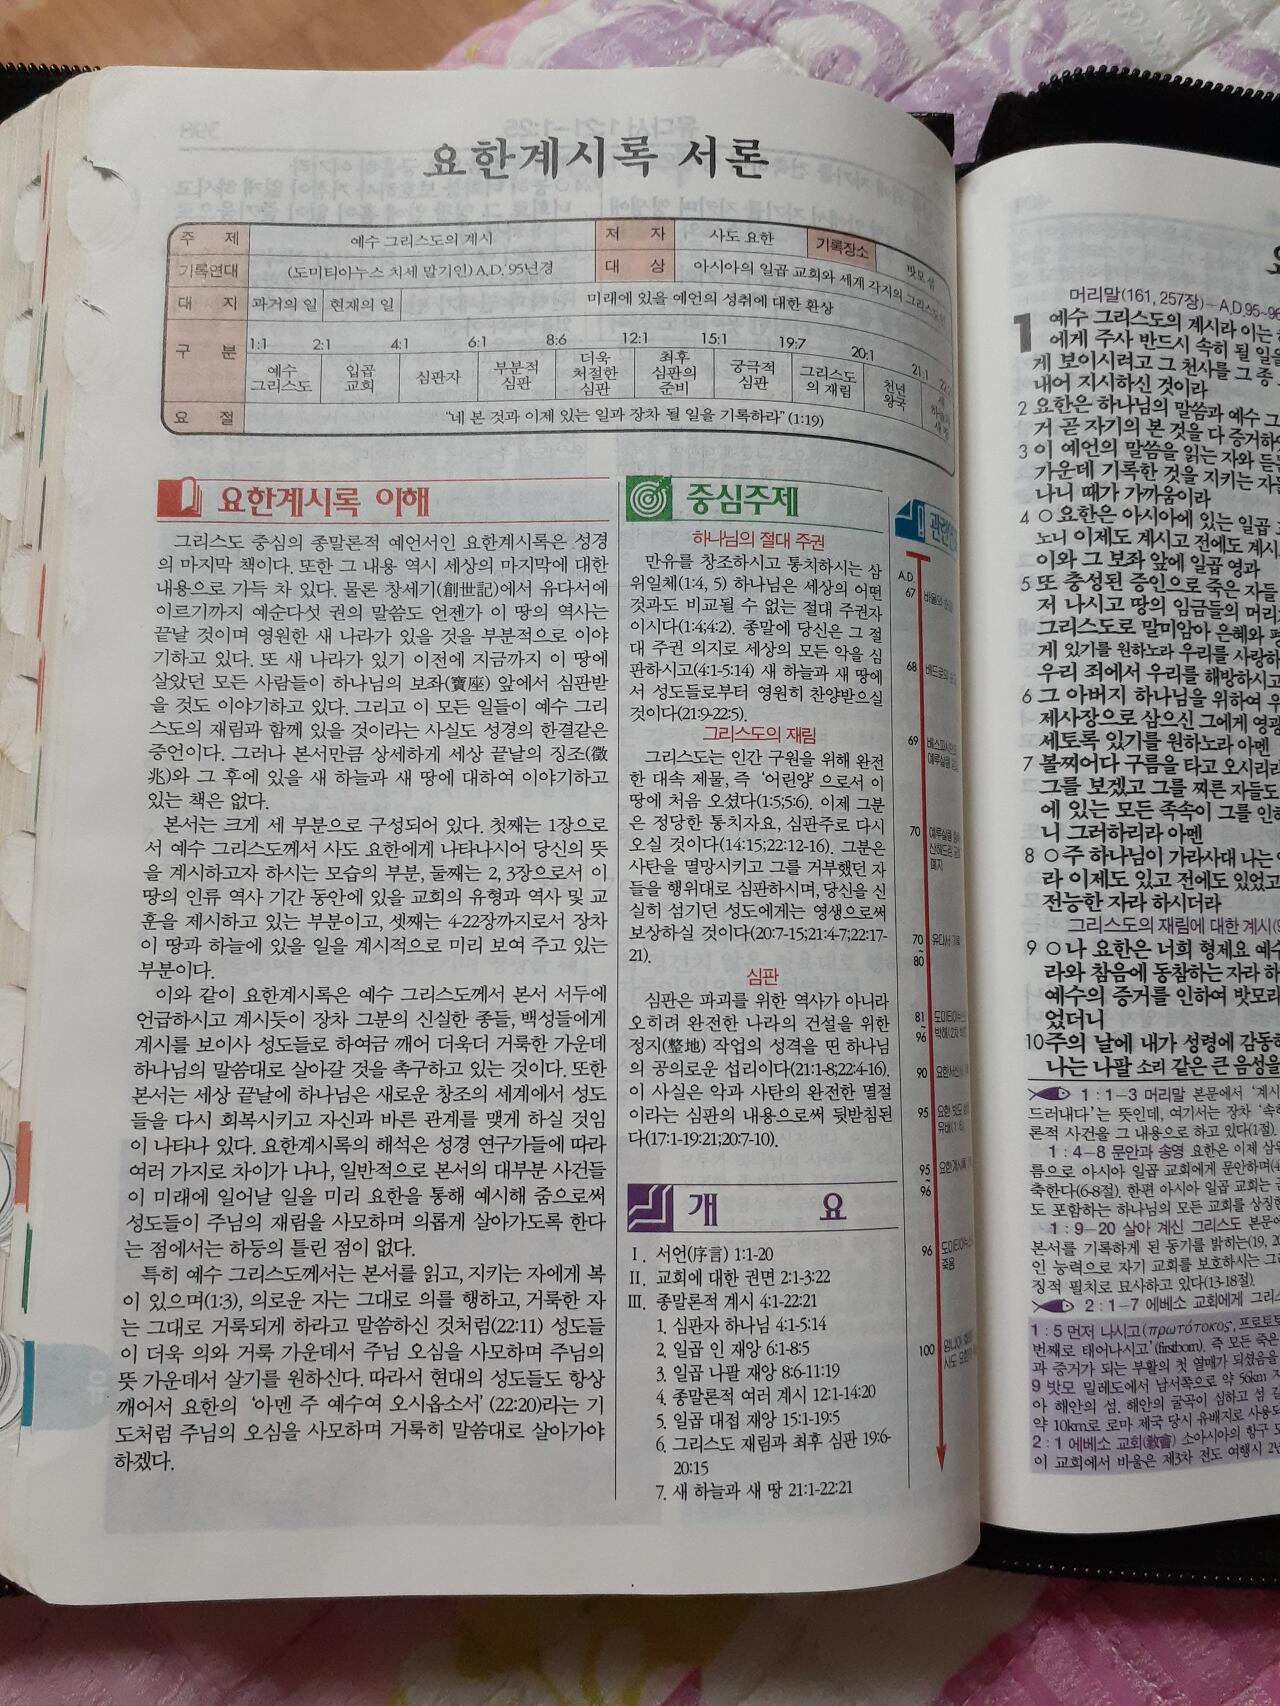 요한계시록 서론
주 제 예수 그리스도의 계시 저 자 사도 요한 기록장소 밧모 섬
기록연대 (도미티아누스 치세 말기인) A.D. 95년경 대 상 아시아의 일곱 교회와 세계 각지의
대 지 과거의 일 현재의 일 미래에 있을 예언의 성취에 대한 환상
구 분 1:1 2:1 4:1 6:1 8:6 12:1 15:1 19:7 20:1 21:1
예수 그리스도 입곱 교회 심판자 부분적 심판 더욱 처절한 심판 최후 심판의 준비 궁극적 심판 그리스도의 재림 천년 왕국
요 절 “네 본 것과 이제 있는 일과 장차 될 일을 기록하라” (1:19)
요한계시록 이해
그리스도 중심의 종말론적 예언서인 요한계시록은 성경
의 마지막 책이다. 또한 그 내용 역시 세상의 마지막에 대한
내용으로 가득 차 있다. 물론 창세기(創世記)에서 유다서에
이르기까지 예순다섯 권의 말씀도 언젠가 이 땅의 역사는
끝날 것이며 영원한 새 나라가 있을 것을 부분적으로 이야
기하고 있다. 또 새 나라가 있기 이전에 지금까지 이 땅에
살았던 모든 사람들이 하나님의 보좌(寶座) 앞에서 심판받
을 것도 이야기하고 있다. 그리고 이 모든 일들이 예수 그리
스도의 재림과 함께 있을 것이라는 사실도 성경의 한결같은
증언이다. 그러나 본서만큼 상세하게 세상 끝날의 징조(徵
兆)와 그 후에 있을 새 하늘과 새 땅에 대하여 이야기하고
있는 책은 없다.
본서는 크게 세 부분으로 구성되어 있다. 첫째는 1장으로
서 예수 그리스도께서 사도 요한에게 나타나시어 당신의 뜻
을 계시하고자 하시는 모습의 부분, 둘째는 2, 3장으로서 이
땅의 인류 역사 기간 동안에 있을 교회의 유형과 역사 및 교
훈을 제시하고 있는 부분이고, 셋째는 4-22장까지로서 장차
이 땅과 하늘에 있을 일을 계시적으로 미리 보여 주고 있는
부분이다.
이와 같이 요한계시록은 예수 그리스도께서 본서 서두에
언급하시고 계시듯이 장차 그분의 신실한 종들, 백성들에게
계시를 보이사 성도들로 하여금 깨어 더욱더 거룩한 가운데
하나님의 말씀대로 살아갈 것을 촉구하고 있는 것이다. 또한
본서는 세상 끝날에 하나님은 새로운 창조의 세계에서 성도
들을 다시 회복시키고 자신과 바른 관계를 맺게 하실 것임
이 나타나 있다. 요한계시록의 해석은 성경 연구가들에 따라
여러 가지로 차이가 나나, 일반적으로 본서의 대부분 사건들
이 미래에 일어날 일을 미리 요한을 통해 예시해 줌으로써
성도들이 주님의 재림을 사모하며 의롭게 살아가도록 한다
는 점에서는 하등의 틀린 점이 없다.
특히 예수 그리스도께서는 본서를 읽고, 지키는 자에게 복
이 있으며(1:3), 의로운 자는 그대로 의를 행하고, 거룩한 자
는 그대로 거룩되게 하라고 말씀하신 것처럼(22:11) 성도들
이 더욱 의와 거룩 가운데서 주님 오심을 사모하며 주님의
뜻 가운데서 살기를 원하신다. 따라서 현대의 성도들도 항상
깨어서 요한의 ‘아멘 주 예수여 오시옵소서’ (22:20)라는 기
도처럼 주님의 오심을 사모하며 거룩히 말씀대로 살아가야
하겠다.
중심주제
하나님의 절대 주권
만유를 창조하시고 통치하시는 삼
위일체(1:4, 5) 하나님은 세상의 어떤
것과도 비교될 수 없는 절대 주권자
이시다(1:4;4:2). 종말에 당신은 그 절
대 주권 의지로 세상의 모든 악을 심
판하시고(4:1-5:14) 새 하늘과 새 땅에
서 성도들로부터 영원히 찬양받으실
것이다(21:9-22:5).
그리스도의 재림
그리스도는 인간 구원을 위해 완전
한 대속 제물, 즉 ‘어린양’으로서 이
땅에 처음 오셨다(1:5;5:6). 이제 그분
은 정당한 통치자요, 심판주로 다시
오실 것이다(14:15;22:12-16). 그분은
사탄을 멸망시키고 그를 거부했던 자
들을 행위대로 심판하시며, 당신을 신
실히 섬기던 성도에게는 영생으로써
보상하실 것이다(20:7-15;21:4-7;22:17-
21).
심판
심판은 파괴를 위한 역사가 아니라
오히려 완전한 나라의 건설을 위한
정지(整地) 작업의 성격을 띤 하나님
의 공의로운 섭리이다(21:1-8;22:4-16).
이 사실은 악과 사탄의 완전한 멸절
이라는 심판의 내용으로써 뒷받침된
다(17:1-19:21;20:7-10).
개 요
Ⅰ. 서언(序言) 1:1-20
Ⅱ. 교회에 대한 권면 2:1-3:22
Ⅲ. 종말론적 계시 4:1-22:21
1. 심판자 하나님 4:1-5:14
2. 일곱 인 재앙 6:1-8:5
3. 일곱 나팔 재앙 8:6-11:19
4. 종말론적 여러 계시 12:1-14:20
5. 일곱 대접 재앙 15:1-19:5
6. 그리스도 재림과 최후 심판 19:6-
20:15
7. 새 하늘과 새 땅 21:1-22:21
A.D.
67
68
69
70
폐지
70
~
80
81
~
96
90
95
95
~
96
96
죽음
100
머리말(161, 257장) - A.D.95~96
1 예수 그리스도의 계시라 이는
에게 주사 반드시 속히 될 일을
게 보이시려고 그 천사를 그 종
내어 지시하신 것이라
2 요한은 하나님의 말씀과 예수
거 곧 자기의 본 것을 다
3 이 예언의 말씀을 읽는 자와
가운데 기록한 것을 지키는
나니 때가 가까움이라
4 ○요한은 아시아에 있는 일곱
노니 이제도 계시고 전에도
이와 그 보좌 앞에 일곱 영과
5 또 충성된 증인으로 죽은
저 나시고 땅의 임금들의
그리스도로 말미암아 은혜와
게 있기를 원하노라 우리를
우리 죄에서 우리를
6 그 아버지 하나님을 위하여
제사장으로 삼으신 그에게
세토록 있기를 원하노라 아멘
7 볼찌어다 구름을 타고
그를 보겠고 그를 찌른 자들도
에 있는 모든 족속이 그를
니 그러하리라 아멘
8 ○주 하나님이 가라사대 나는
라 이제도 있고 전에도
전능한 자라 하시더라
그리스도의 재림에 대한
9 ○나 요한은 너희 형제요
라와 참음에 동참하는 자라
예수의 증거를 인하여
었더니
10 주의 날에 내가 성령에
나는 나팔 소리 같은 큰
1:1-3 머리말 본문에서
드러내다’는 뜻인데, 여기서는 장차
론적 사건을 그 내용으로 하고 있다(1절).
1:4-8 문안과 송영 요한은 이제
름으로 아시아 일곱 교회에게 문안하며
축한다(6-8절). 한편 아시아 일곱 교회는
도 포함하는 하나님의 모든 교회를
1:9-20 살아 계신 그리스도
본서를 기록하게 된 동기를 밝히는
인 능력으로 자기 교회를 보호하시는
징적 필치로 묘사하고 있다(13-18절).
2:1-7 에베소 교회에게
1:5 먼저 나시고(πρωτότοκος,
번째로 태어나시고’(firstborn). 즉 모든
과 증거가 되는 부활의 첫 열매가
9 밧모 밀레도에서 남서쪽으로 약 56km
아 해안의 섬. 해안의 굴곡이 심하고 섬
약 10km로 로마 제국 당시 유배지로
2:1 에베소 교회(敎會) 소아시아의 항구
이 교회에서 바울은 제3차 전도 여행시
유